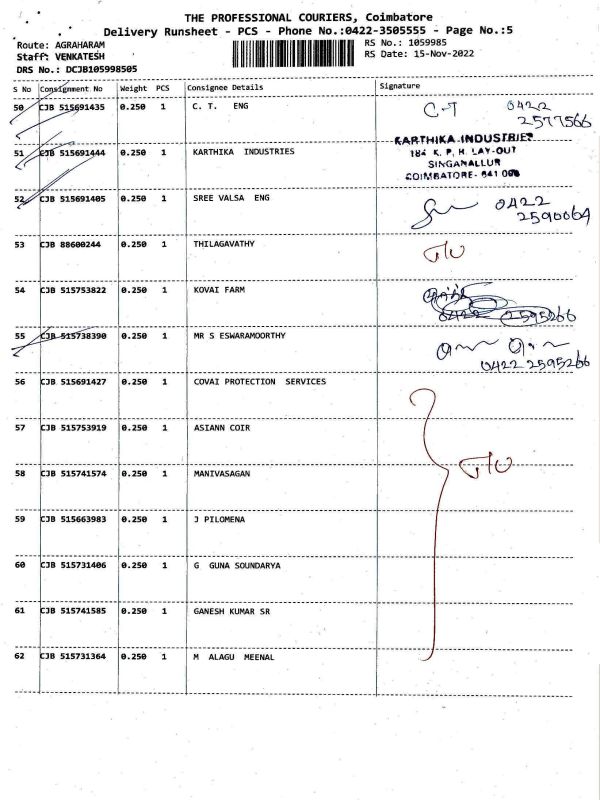 THE PROFESSIONAL COURIERS, Coimbatore
Delivery Runsheet - PCS - Phone No.:0422-3505555 - Page No.:5
Route: AGRAHARAM
RS No.: 1059985
Staff: VENKATESH
RS Date: 15-Nov-2022
DRS No.: DCJB105998505
S No Consignment No Weight PCS Consignee Details Signature
50 CJB 515691435 0.250 1 C. T. ENG C.T 0422
2577566
51 CJB 515691444 0.250 1 KARTHIKA INDUSTRIES KARTHIKA INDUSTRIES
184 K. P. H. LAY-OUT
SINGANALLUR
COIMBATORE- 641 005
52 CJB 515691405 0.250 1 SREE VALSA ENG 0422
2590064
53 CJB 88600244 0.250 1 THILAGAVATHY
54 CJB 515753822 0.250 1 KOVAI FARM
0422 2595266
55 CJB 515738390 0.250 1 MR S ESWARAMOORTHY
0422 2595266
56 CJB 515691427 0.250 1 COVAI PROTECTION SERVICES
57 CJB 515753919 0.250 1 ASIANN COIR
58 CJB 515741574 0.250 1 MANIVASAGAN
59 CJB 515663983 0.250 1 J PILOMENA
60 CJB 515731406 0.250 1 G GUNA SOUNDARYA
61 CJB 515741585 0.250 1 GANESH KUMAR SR
62 CJB 515731364 0.250 1 M ALAGU MEENAL